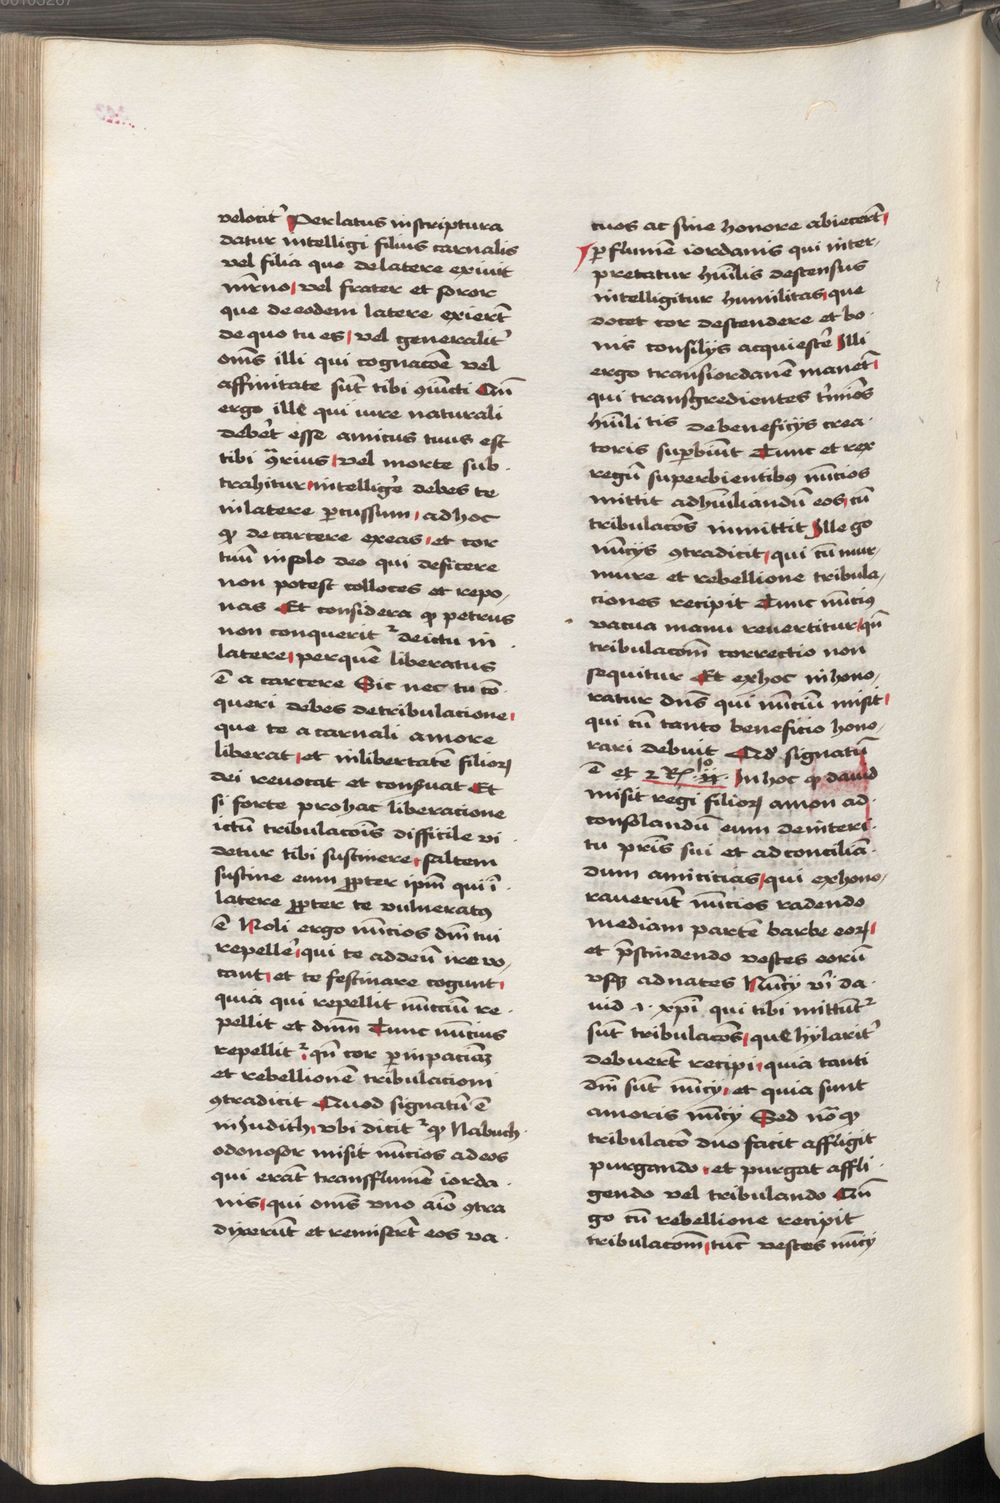 velocit᷑ Per latus in scriptura
datur intelligi filius carnalis
vel filia que de latere exiuit
mr̄no vel frater et soror
que de eodem latere exiert̄
de quo tu es vel generalit᷑
om̄s illi qui cognacōe vel
affinitate sut̄ tibi ꝯiuncti Cū
ergo ille qui iure naturali
deber̄t esse amicus tuus est
tibi ꝯ̄rius vel morte sub-
trahitur intellige᷑ debes te
in latere ꝑcussum ad hoc
ꝙ de carcere exeas et cor
tuū in solo deo qui deficere
non potest colloces et repo-
nas Et considera ꝙ petrus
non conquerit᷑ de ictu in
latere per quē liberatus
ē a carcere Sic nec tu cō-
queri debes de tribulacione
que te a carnali amore
liberat et in libertatē filioꝝ
dei reuocat et conẜuat Et
si forte pro hac liberacione
ictū tribulacōis difficile vi-
detur tibi sustinere saltem
sustine eum ꝓpter ipm̄ qui ī
latere ꝓpter te vulneratꝰ
ē Noli ergo nūcios dn̄i tui
repelle᷑ qui te ad deū reuo-
cant et te festinare cogunt
quia qui repellit nuncciū re-
pellit et dnm̄ Tunc nuncius
repellit᷑ qn̄ cor ꝑ inpaciāꝫ
et rebellionē tribulacioni
ꝯtradicit Quod signatū ē
in Iudith vbi dicit᷑ ꝙ Nabuch-
odonosor misit nūcios ad eos
qui erāt trans flumē iorda-
nis qui om̄s vno aīo ꝯtra
dixerūt et remisert̄ eos va-
cuos ac sine honore abiecert̄
ꝑ flumē iordanis qui inter-
pretatur hūilis descensus
intelligitur humilitas que
docet cor descendere et bo-
nis consilijs acquiesce᷑ Illi
ergo trans iordanē manet̄
qui transgredientes t᷑mīos
hūilitis de beneficijs crea-
toris suꝑbiūt Tunc et rex
regū superbientibꝰ nūcios
mittit ad hūiliandū eos cū
tribulacōs inmittit Ille go
nūcijs ꝯtradicit qui cū mur-
mure et rebellione tribula-
ciones recipit Tunc nūciꝰ
vacua manu reuertitur qn̄
tribulacom̄ correctio non
sequitur Et ex hoc inhono-
ratur dn̄s qui nūciū misit
qui cū tanto beneficio hono-
rari debuit Qd̓ signatū
ē et 2 Rꝭ xͦ In hoc ꝙ dauid
misit regi filioꝝ amon ad
consolandū eum de interi-
tu pr̄is sui et ad conciliā-
dum amicicias qui exhono-
rauerūt nūcios radendo
mediam partē barbe eoꝝ
et p̄scindendo vestes eorū
vsqꝫ ad nates Nūcij vr̄i da-
uid .i. xpī qui tibi mittūt᷑
sūt tribulacōs que hylarit᷑
debuert̄ recipi quia tanti
dn̄i sūt nūcij et quia sunt
amoris nūcij Sed nōꝙ
tribulacō duo facit affligit
purgando et purgat affli-
gendo vel tribulando Cū
go cū rebellione recipit
tribulacom̄ tūc vestes nūcij